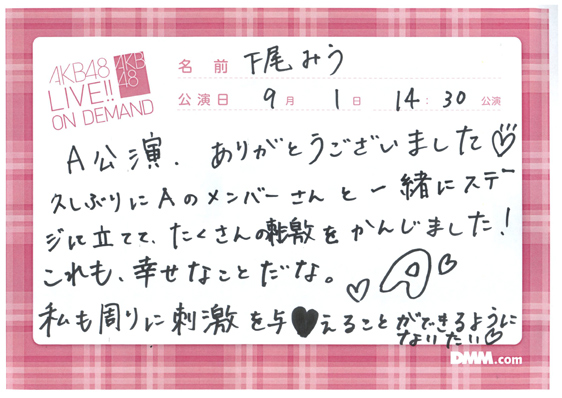 AKB48
LIVE!!
ON DEMAND
AKB
48
名前 下尾みう
公演日 9月 1日 14:30 公演
A公演、ありがとうございました♡
久しぶりにAのメンバーさんと一緒にステー
ジに立てて、たくさんの刺激をかんじました!
これも、幸せなことだな。 ♡A♡
私も周りに刺激を与♥えることができるように
なりたい♡
DMM.com